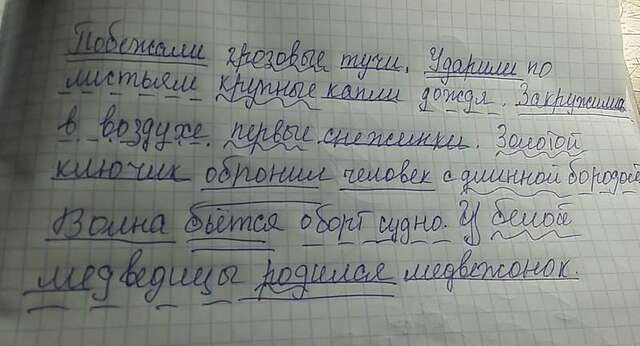 Побежали грозовые тучи. Ударили по
листьям крупные капли дождя. Закружились
в воздухе первые снежинки. Золотой
ключик обронил человек с длинной бородой
Волна бьётся оборт судно. У белой
медведицы родился медвежонок.